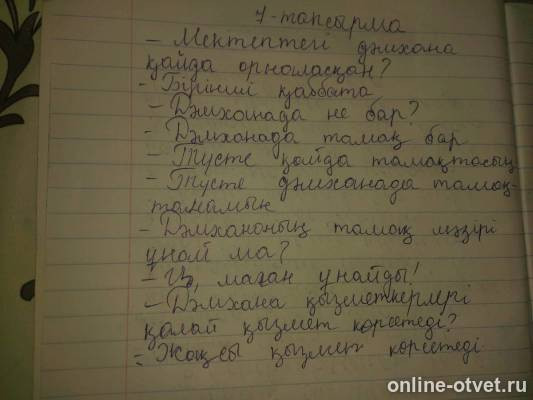 7-тапсырма
- Мектептегі дәмхана
қайда орналасқан?
- Бірінші қабатта
- Дәмханада не бар?
- Дәмханада тамақ бар
- Түсте қайда тамақтасың
- Түсте дәмханада тамақ-
танамын
- Дәмхананың тамақ мәзірі
ұнай ма?
- Иә, маған ұнайды!
- Дәмхана қызметкерлері
қалай қызмет көрсетеді?
= Жақсы қызмет көрсетеді
online-otvet.ru